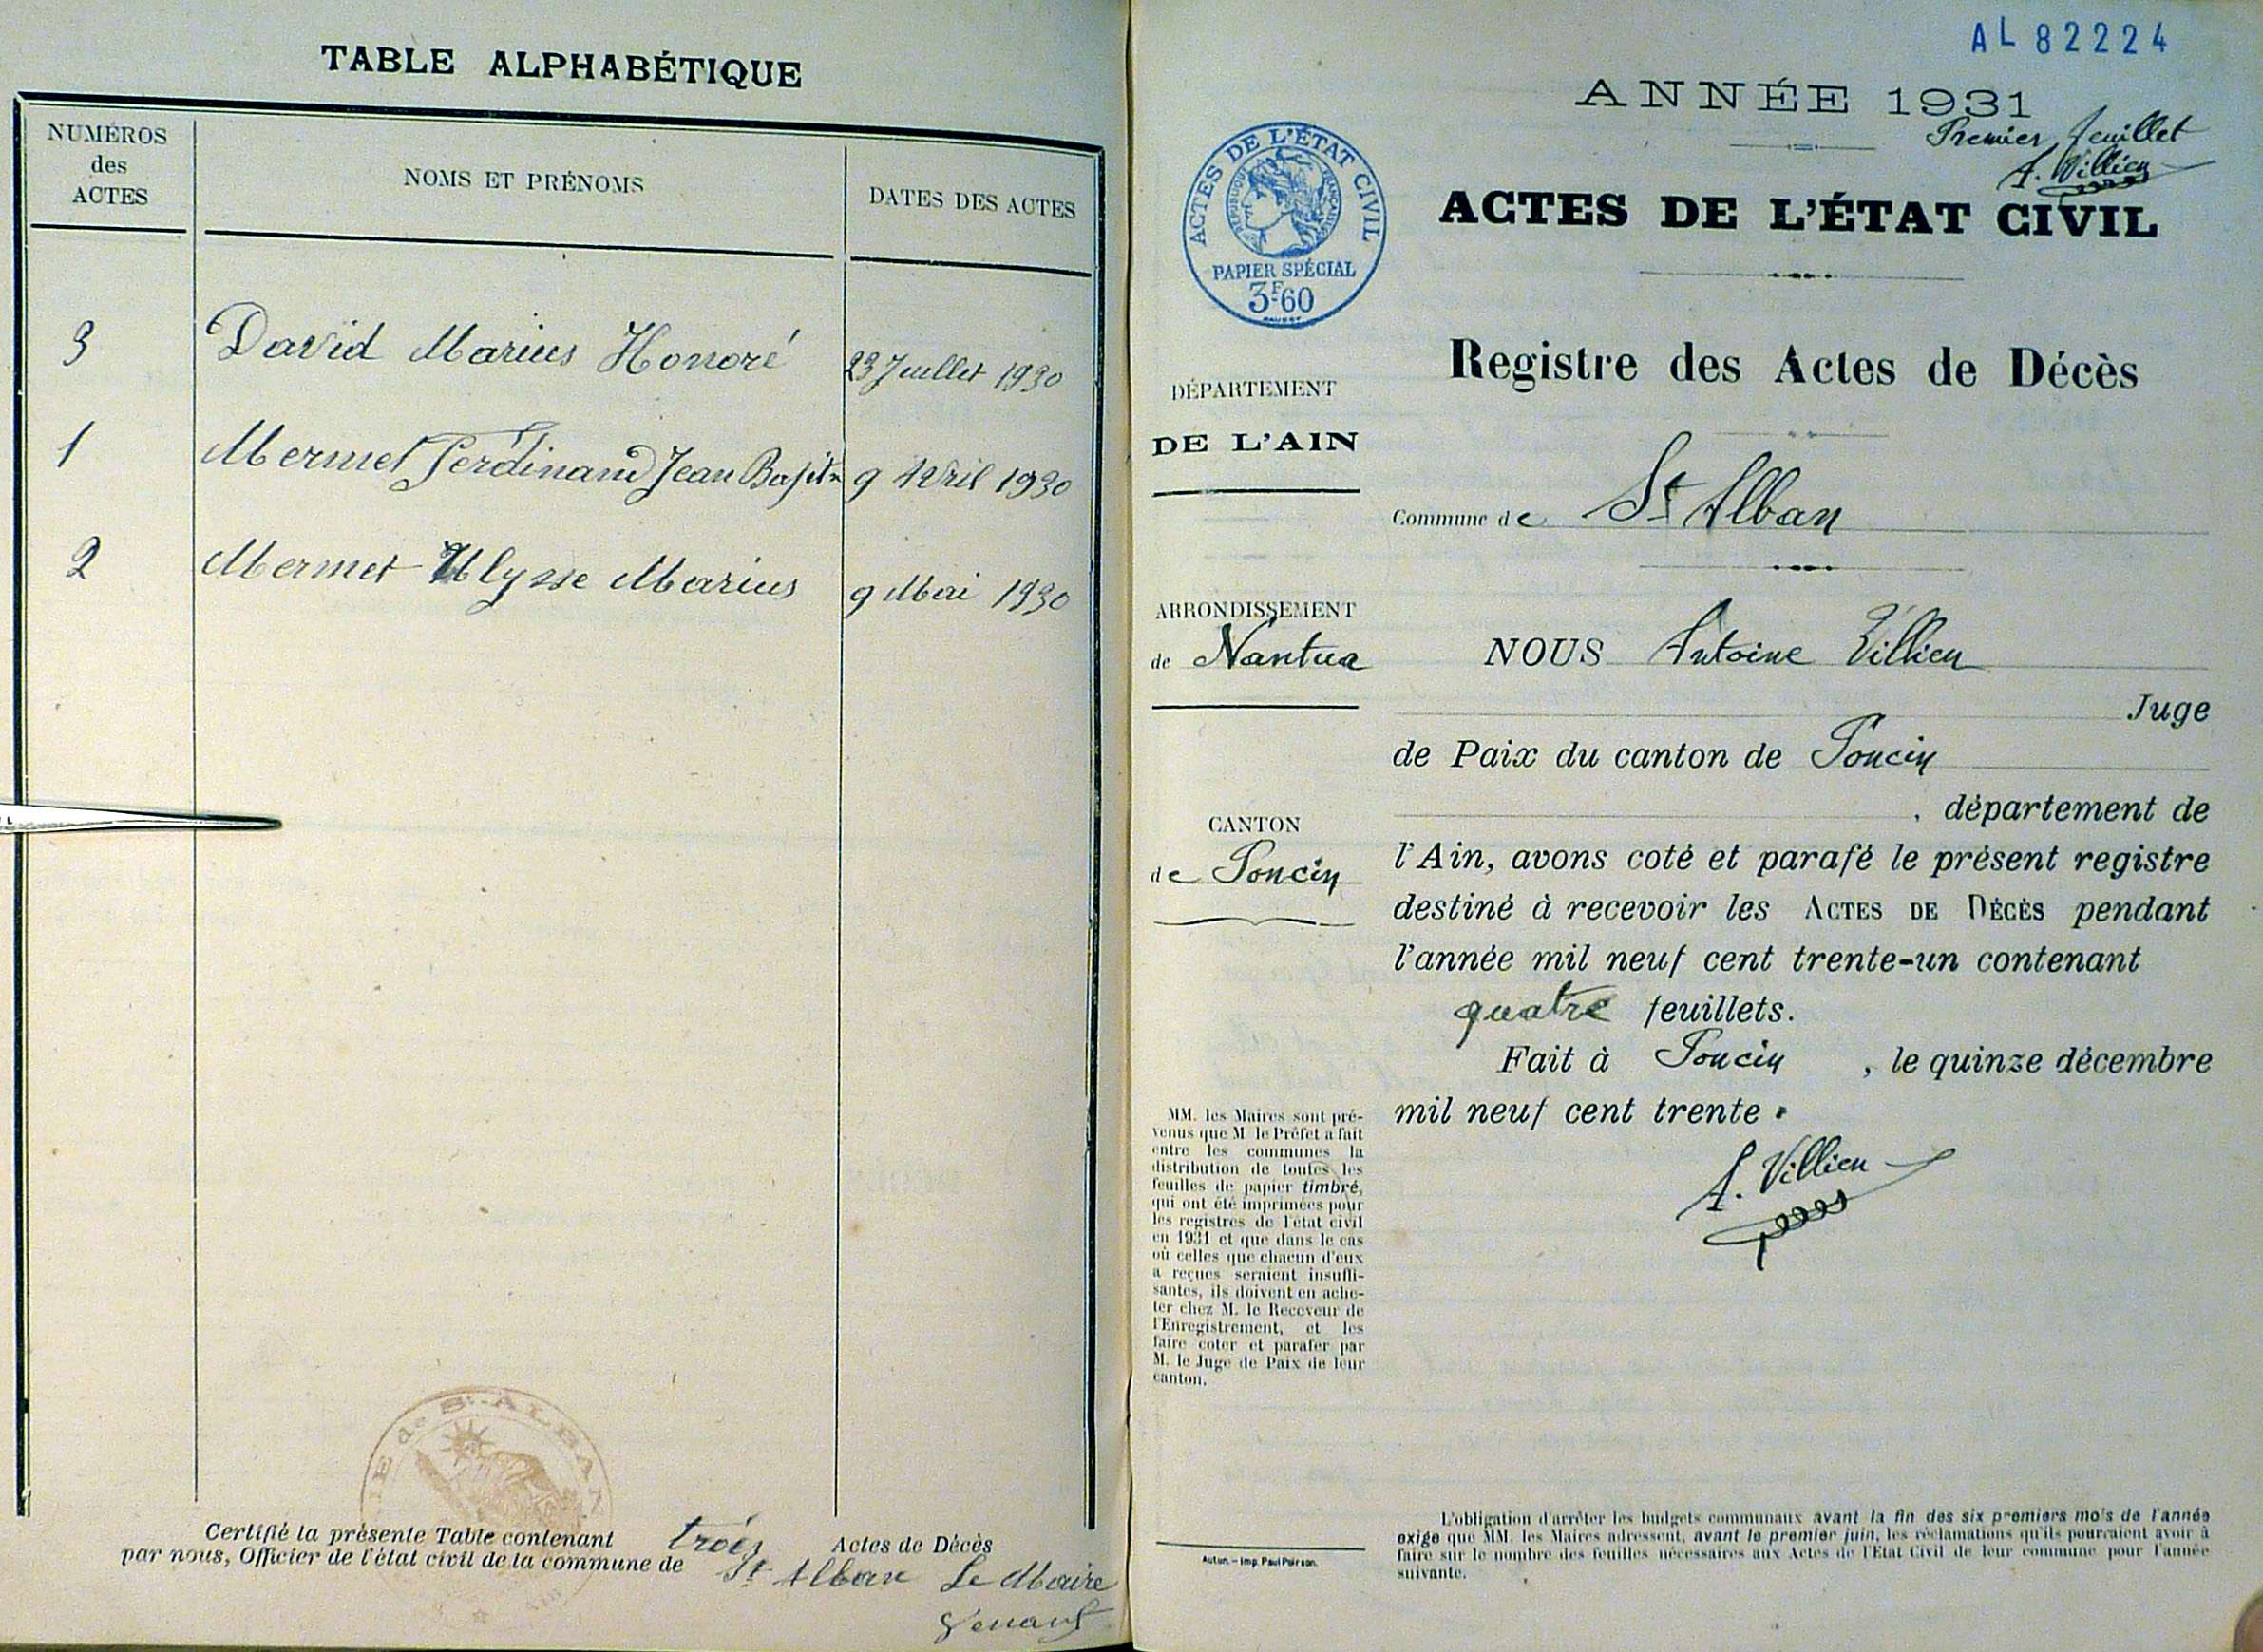 TABLE ALPHABÉTIQUE
NUMÉROS
des
ACTES
NOMS ET PRÉNOMS
DATES DES ACTES
3 David Marius Honoré 23 Juillet 1930
1 Mermet Ferdinand Jean Baptte 9 Avril 1930
2 Mermet Ulysse Marius 9 Mai 1930
DE ST-ALBAN
Certifié la présente Table contenant trois Actes de Décès
par nous, Officier de l'état civil de la commune de St Alban Le Maire
AL 82224
ANNÉE 1931
Premier feuillet
A. Villien
ACTES DE L'ÉTAT CIVIL
RÉPUBLIQUE FRANÇAISE
PAPIER SPÉCIAL
3F60
ACTES DE L'ÉTAT CIVIL
Registre des Actes de Décès
DÉPARTEMENT
DE L'AIN
Commune de St Alban
ARRONDISSEMENT
de Nantua
CANTON
de Poncin
NOUS Antoine Villien
Juge
de Paix du canton de Poncin
, département de
l'Ain, avons coté et parafé le présent registre
destiné à recevoir les ACTES DE DÉCÈS pendant
l'année mil neuf cent trente-un contenant
quatre feuillets.
Fait à Poncin , le quinze décembre
mil neuf cent trente.
A. Villien
MM. les Maires sont pré-
venus que M. le Préfet a fait
entre les communes la
distribution de toutes les
feuilles de papier timbré,
qui ont été imprimées pour
les registres de l'état civil
en 1931 et que dans le cas
où celles que chacun d'eux
a reçues seraient insuffi-
santes, ils doivent en ache-
ter chez M. le Receveur de
l'Enregistrement, et les
faire coter et parafer par
M. le Juge de Paix de leur
canton.
Autun. — Imp. Paul Poirson.
L'obligation d'arrêter les budgets communaux avant la fin des six premiers mois de l'année
exige que MM. les Maires adressent, avant le premier juin, les réclamations qu'ils pourraient avoir à
faire sur le nombre des feuilles nécessaires aux Actes de l'Etat Civil de leur commune pour l'année
suivante.